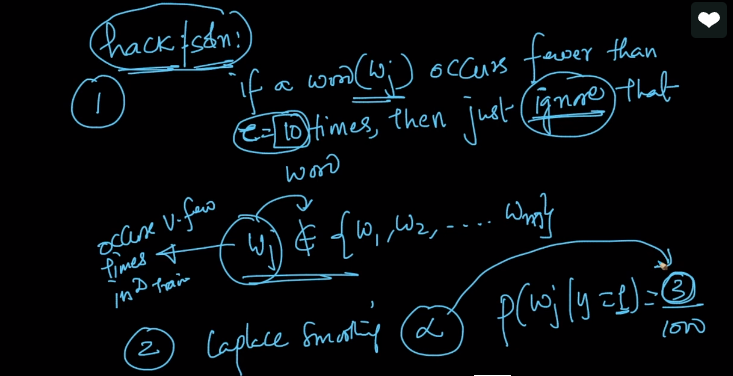 hack/soln:
① if a word (wj) occurs fewer than
τ=10 times, then just ignore that
word
occure v. few
times
in D train
wj ∉ {w1, w2, .... wm}
② Laplace Smoothing α
p(wj|y=1)=3/1000